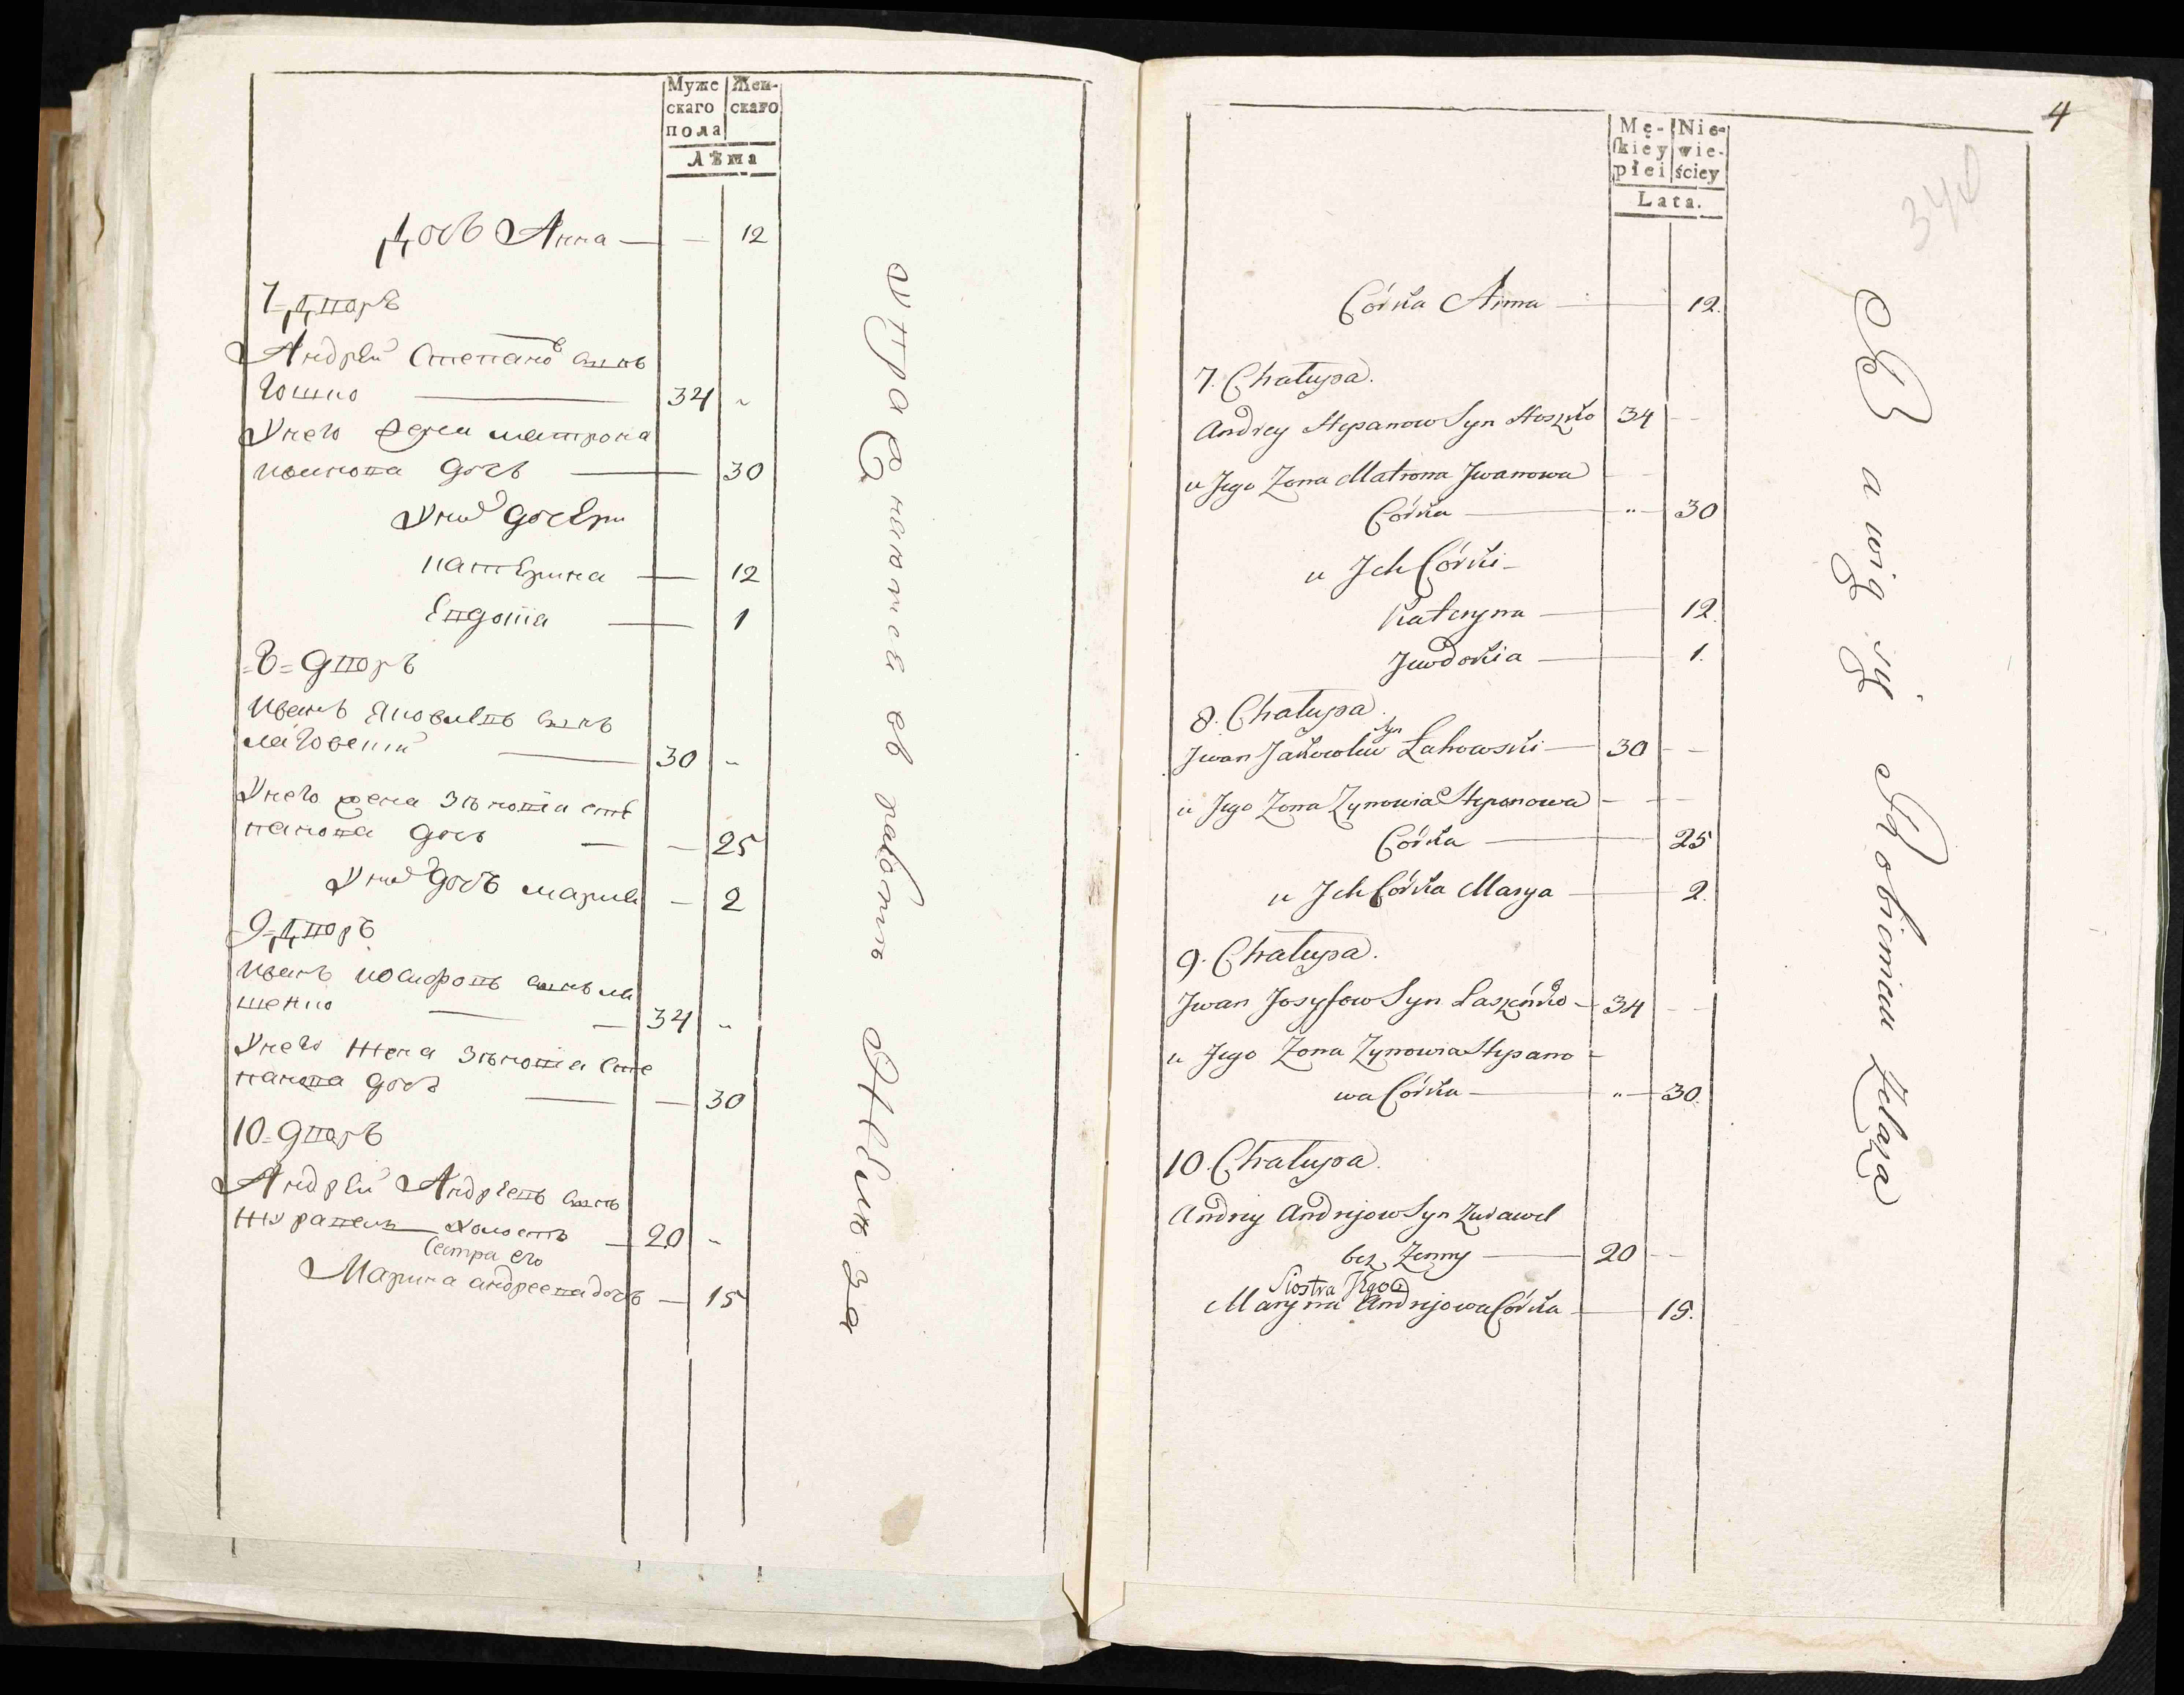 Муже Жен-
скаго скаго
пола
Лѣта
Дочь Анна — — 12
7 Дворъ
Андрей Степановъ сынъ
Гошко 34 „
У него жена матрона
иванова дочь 30
У них дочери
катерина 12
Евдокia 1
8 = дворъ
Иванъ Яковлевъ сынъ
лаговский 30 „
У него жена Зѣновia сте
панова дочь — — 25
У них дочь мария — 2
9 дворъ
Иванъ иосифовъ сынъ ла
шенко 34 „
У него жена Зѣновia Сте
панова дочь — 30
10 = дворъ
Андрей Андреевъ сынъ
журавель холостъ 20 „
Сестра его
Марина андреева дочь — 15
упражняются въ работѣ Желѣза
4
340
Mę- Nie-
ſkiey wie-
płci ściey
Lata.
Córka Anna — 12.
7. Chałupa.
Andrey Stepanow Syn Hoszko 34 —
u Jego Zona Matrona Jwanowa
Córka „ 30
u Jch Córki —
Kateryna 12.
Jewdokia 1.
8. Chałupa.
Syn
Jwan Jakowlew Łahowski — 30 —
u Jego Zona Zynowia Stepanowa —
Córka 25
u Jch Córka Marya 2.
9. Chałupa.
Jwan Josyfow Syn Łaszeńko — 34 —
u Jego Zona Zynowia Stepano
wa Córka „ 30.
10. Chałupa.
Andrey Andrejow Syn Zurawel
bez Zenny 20 —
Siostra Jego
Maryna Andrejowa Córka 15.
bawią się Robieniem Zelaza